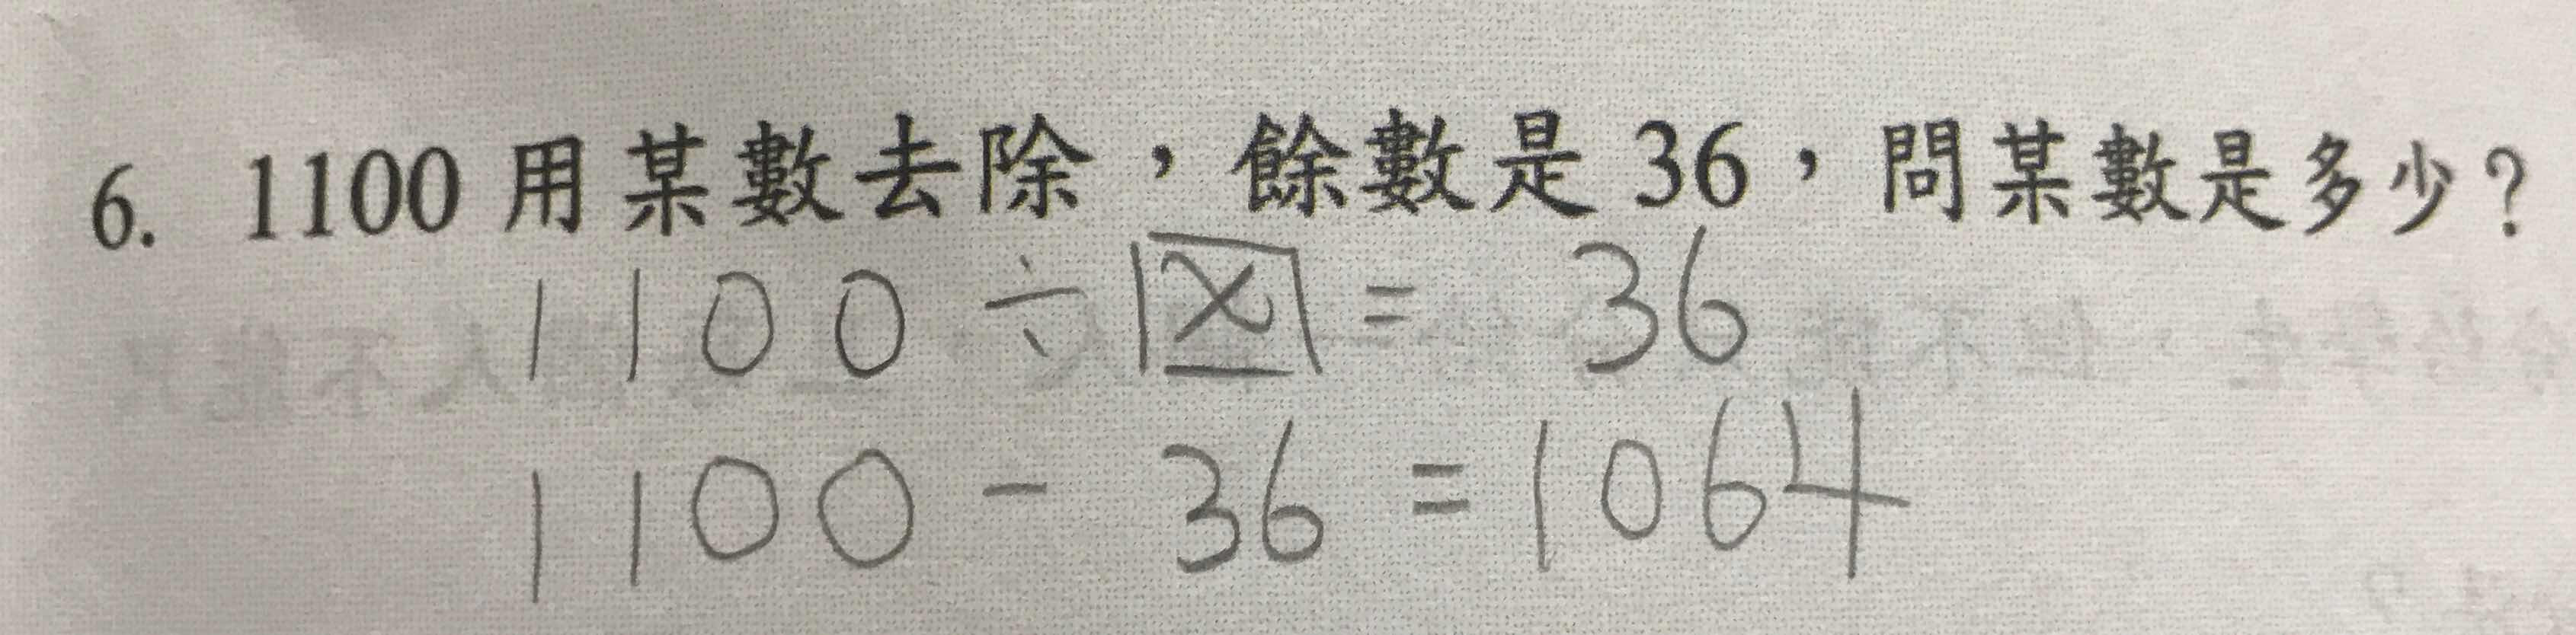 6. 1100 用某數去除，餘數是 36，問某數是多少？
1100 ÷ x = 36
1100 - 36 = 1064